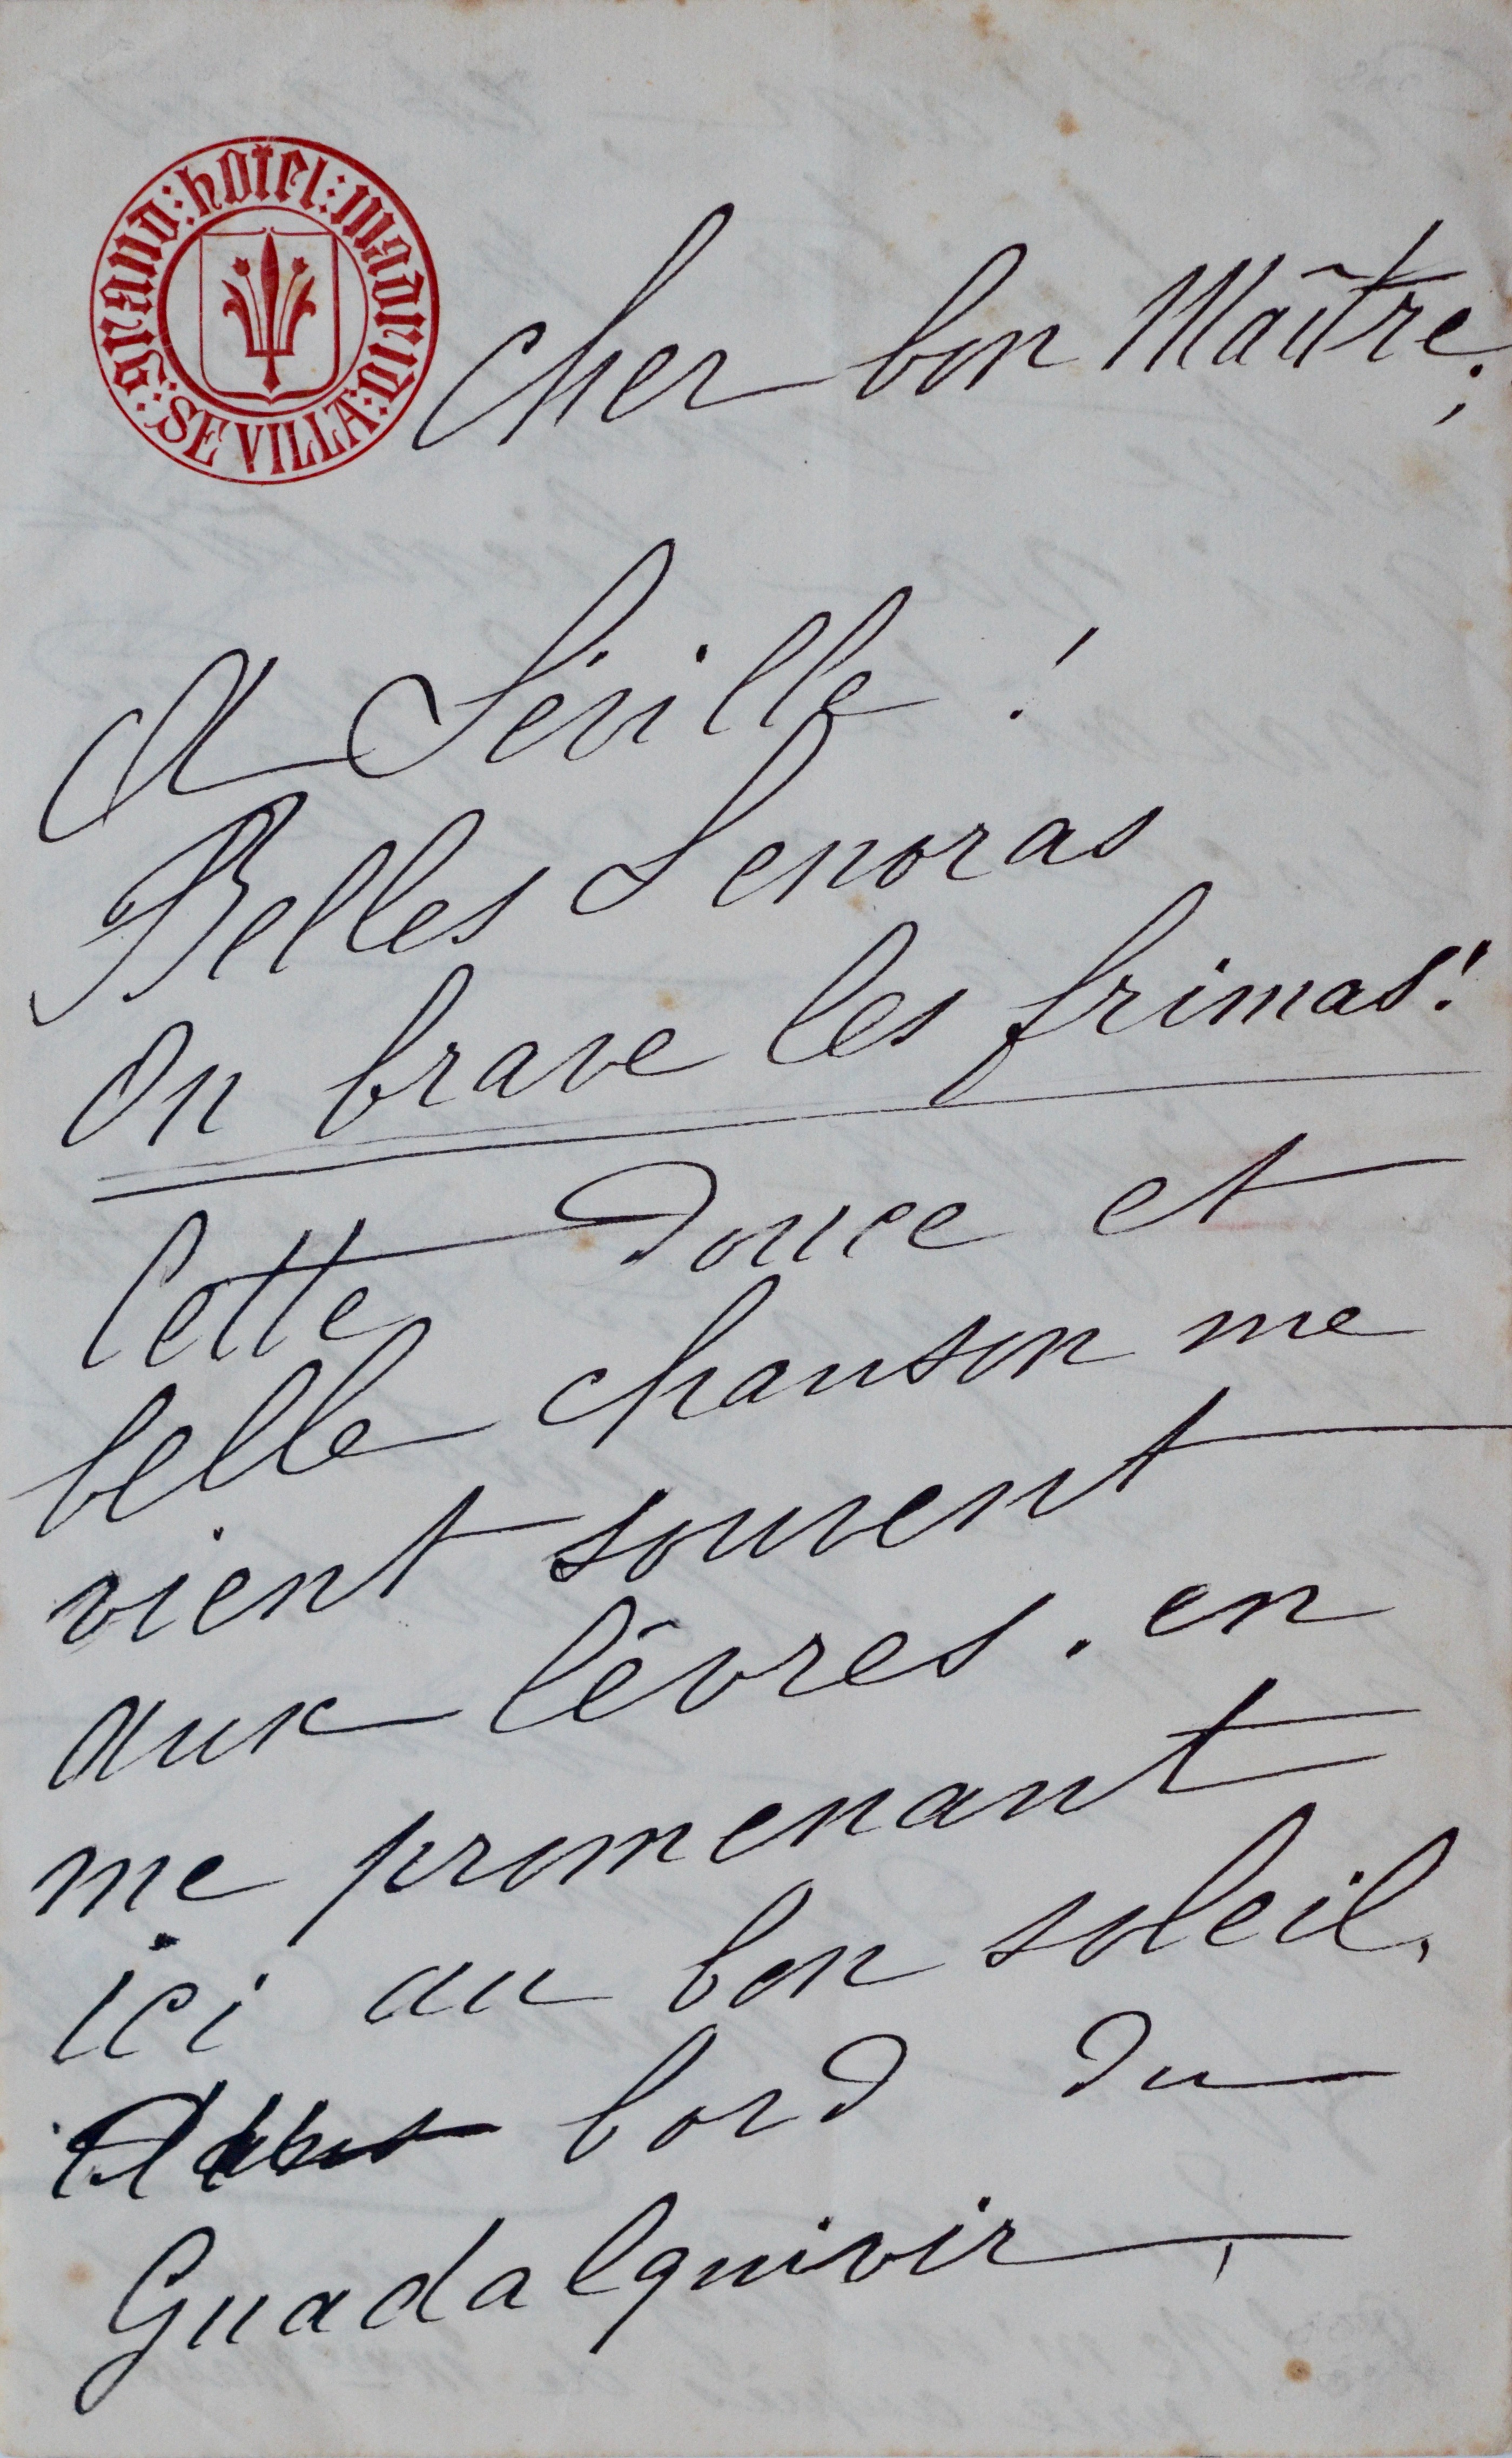 GRAND : HOTEL : MADRID : SEVILLA :
Cher bon Maître,
A Séville !
Belles Senoras
On brave les frimas !
Cette douce et
belle chanson me
vient souvent
aux lèvres. en
me promenant
ici au bon soleil,
bord du
Guadalquivir,